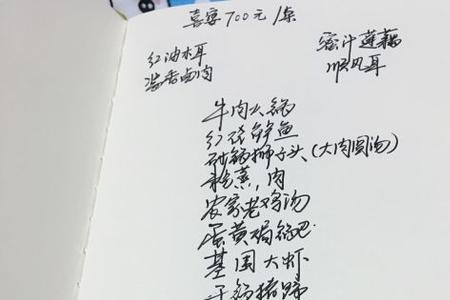 喜宴700元/桌
红油木耳 蜜汁莲藕
酱香卤肉 顺风耳
牛肉火锅
红烧鲜鱼
砂锅狮子头、(大肉圆汤)
粉蒸肉
农家老鸡汤
蛋黄焗锅巴
基围大虾
干锅猪蹄